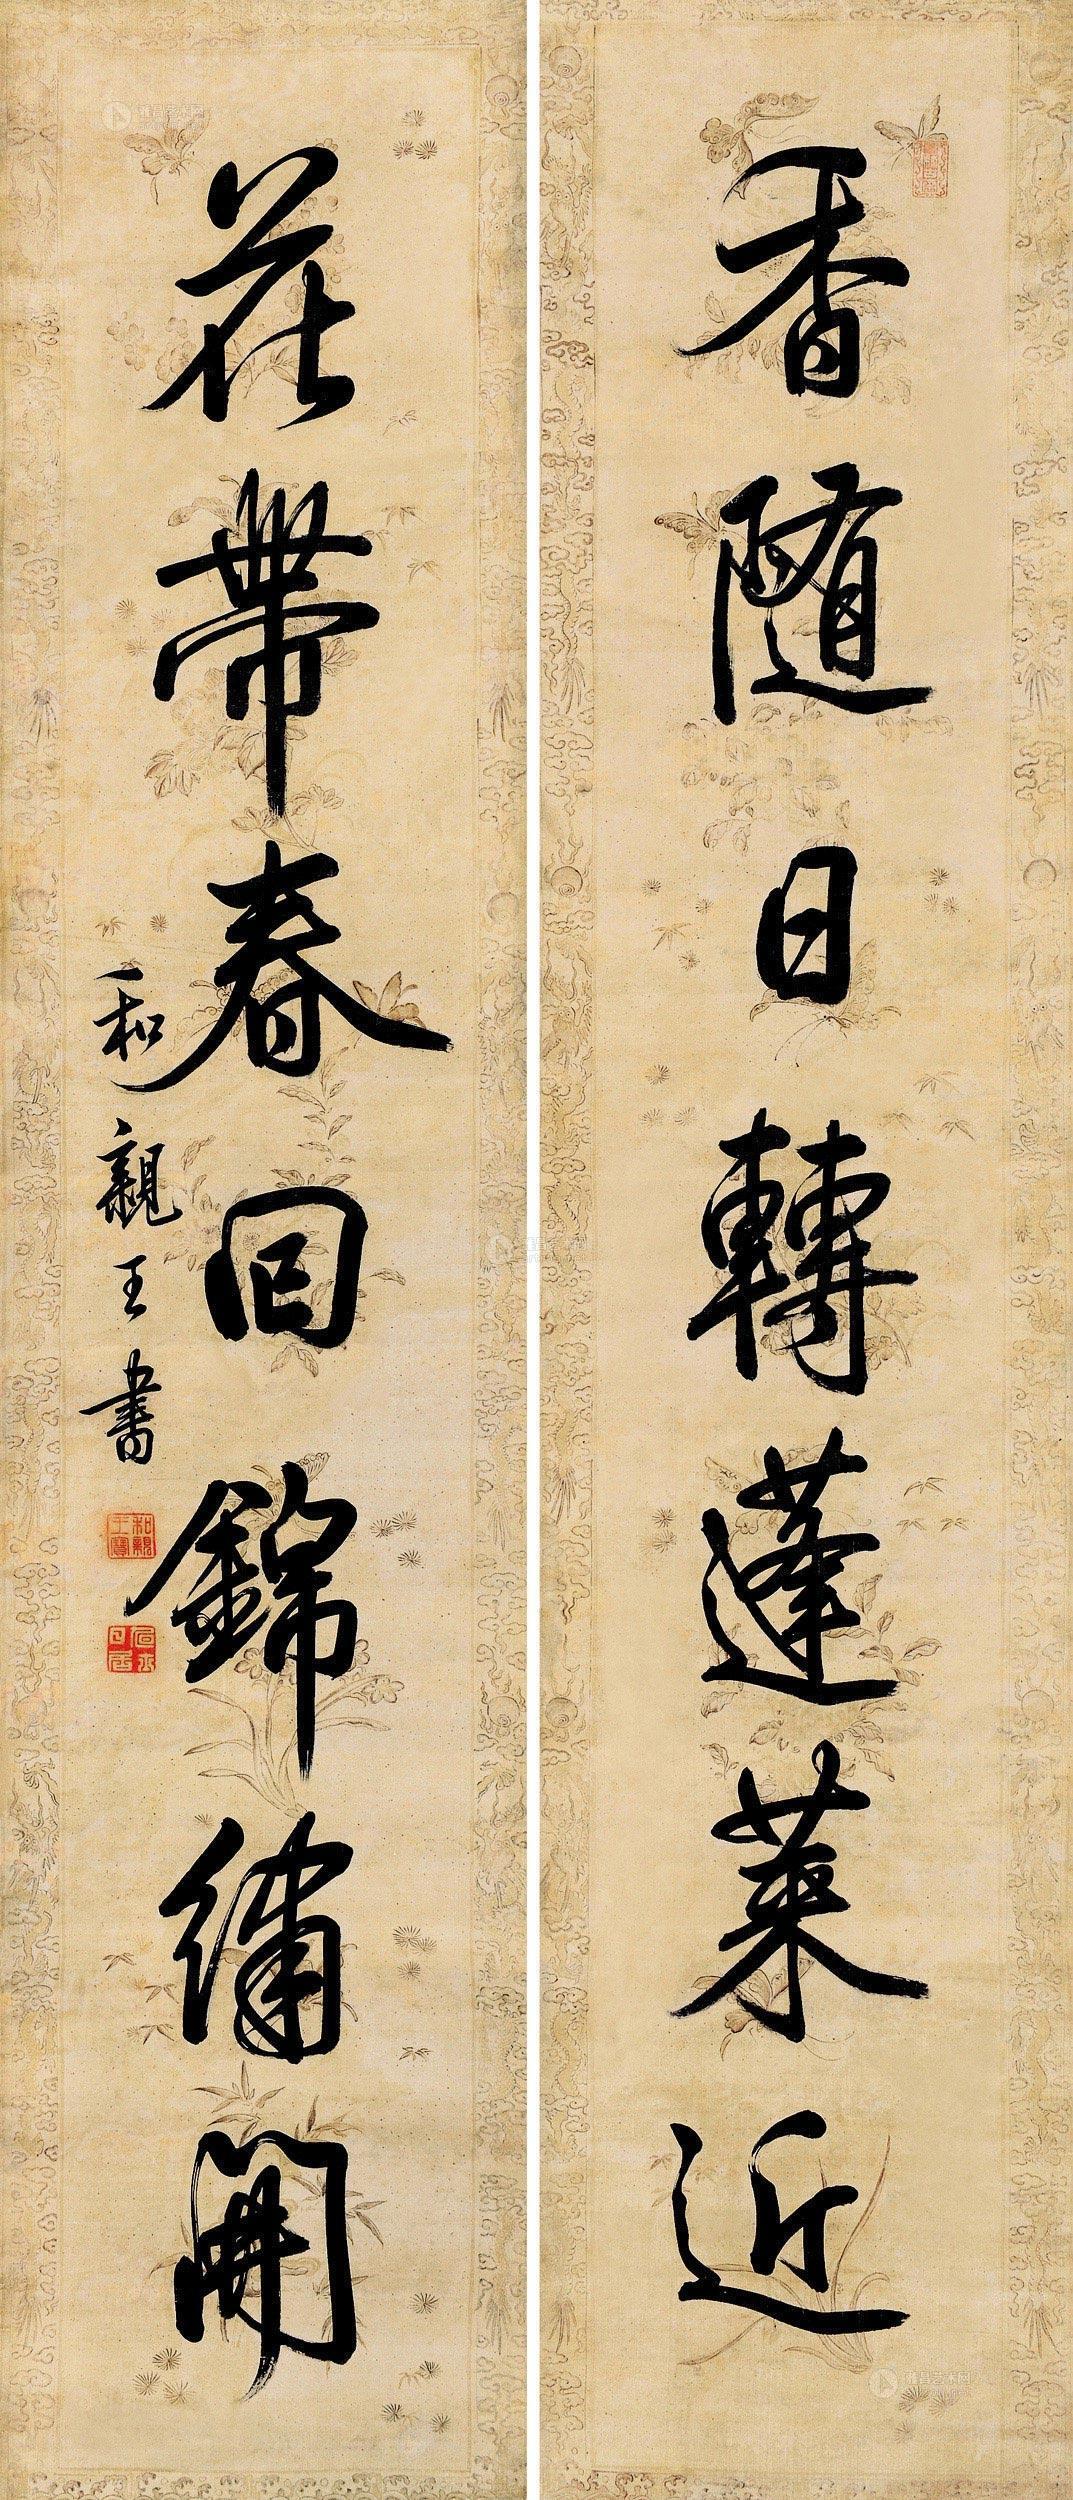 香隨日轉蓬萊近
花帶春回錦繡開
和親王書
和親王寶